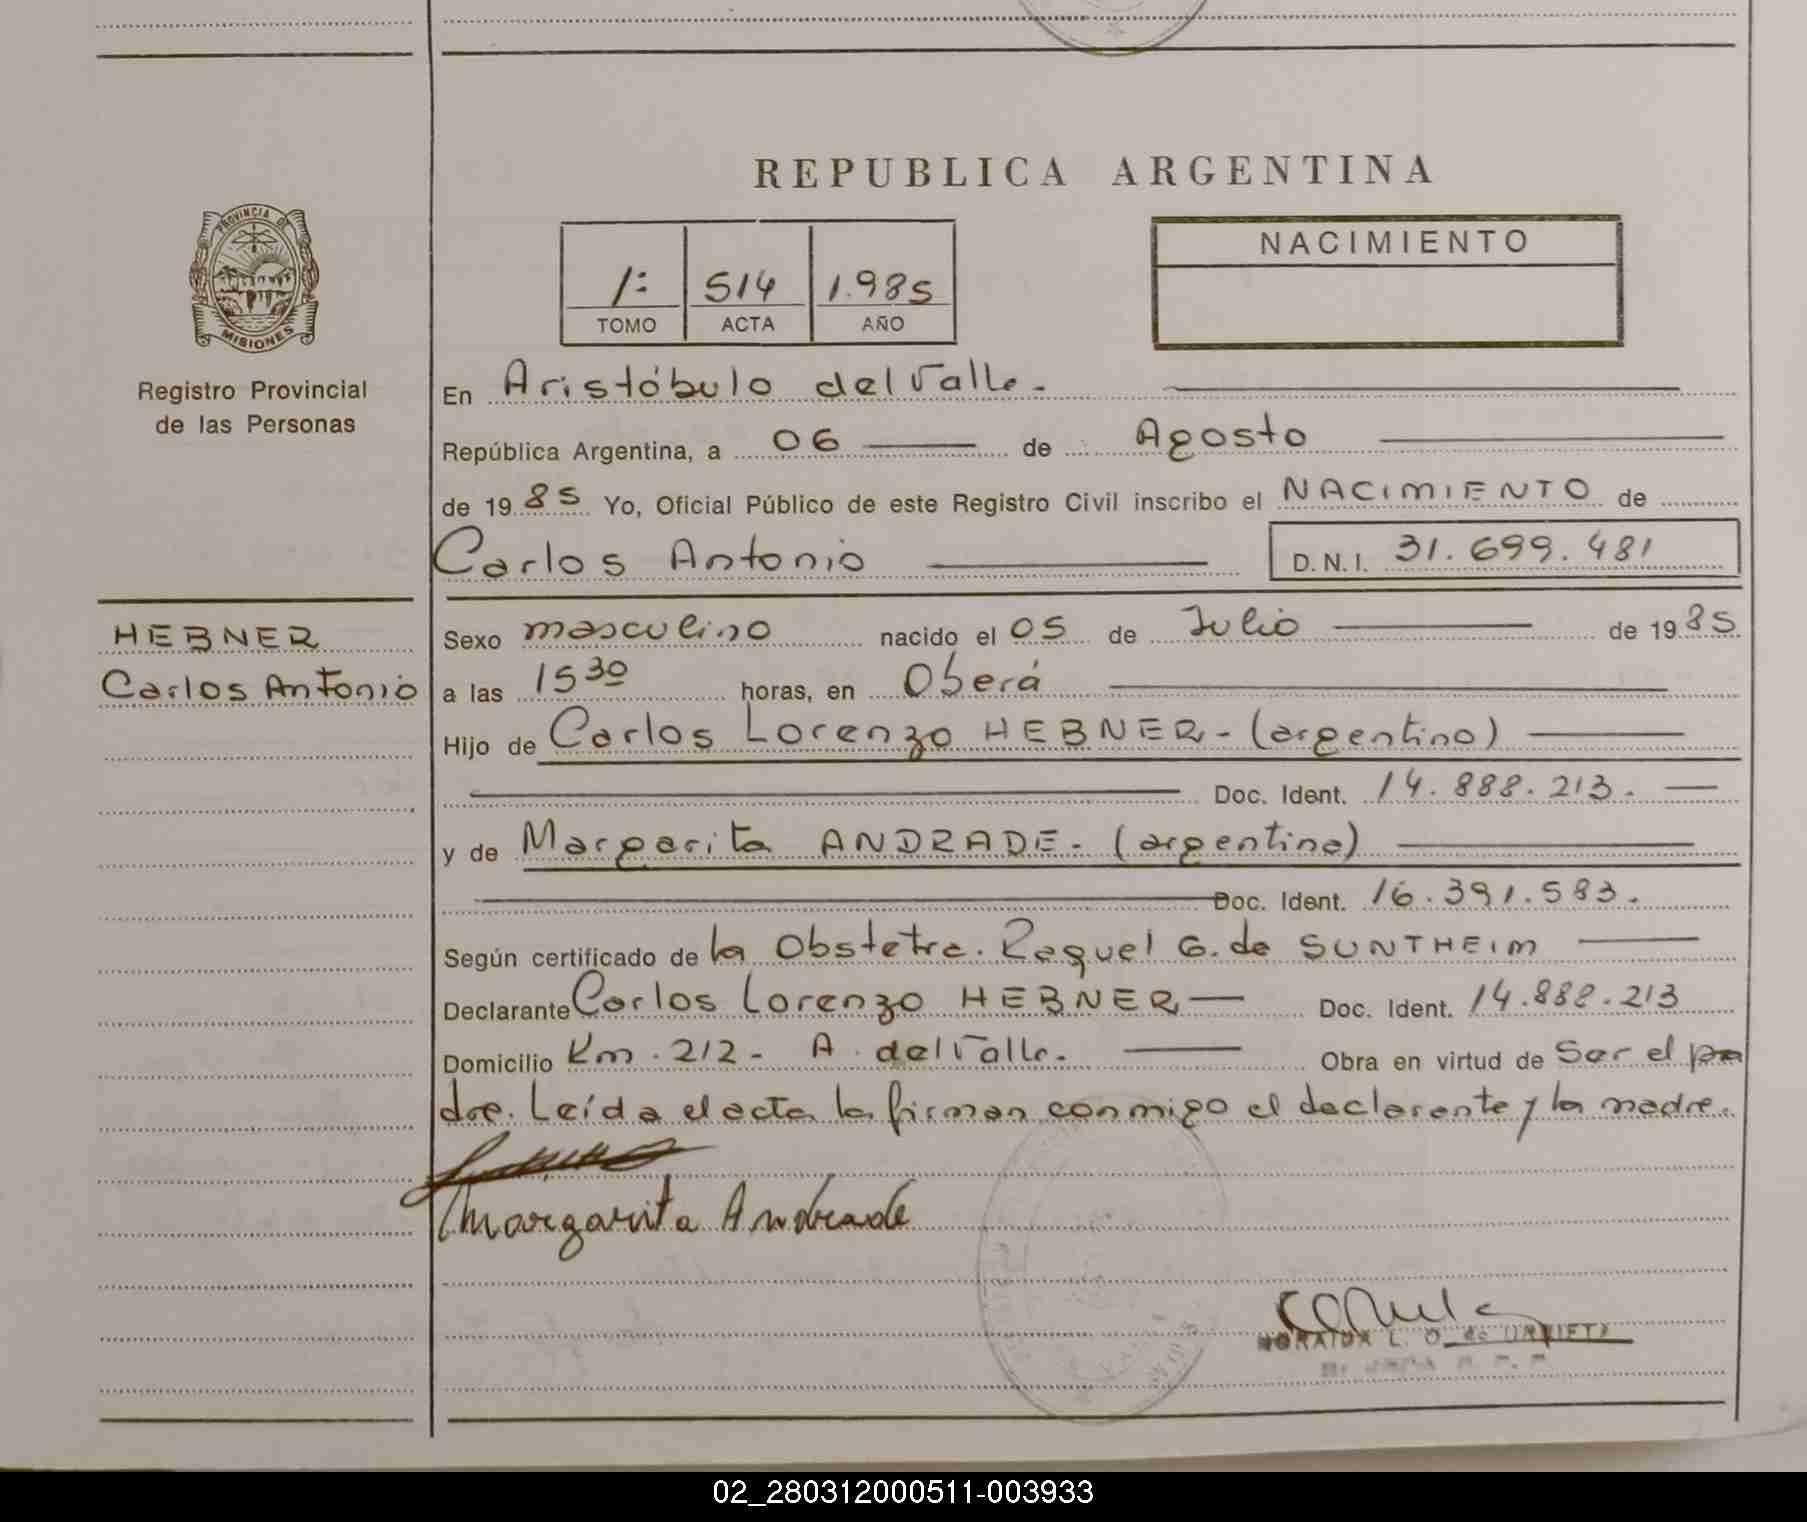 REPUBLICA ARGENTINA
PROVINCIA DE
MISIONES
Registro Provincial
de las Personas
1:
514
1.985
TOMO
ACTA
AÑO
NACIMIENTO
En Aristóbulo del Valle.-
República Argentina, a 06 de Agosto
de 1985 Yo, Oficial Público de este Registro Civil inscribo el NACIMIENTO de
Carlos Antonio D.N.I. 31.699.481
HEBNER
Carlos Antonio
Sexo masculino nacido el 05 de Julio de 1985
a las 15 30 horas, en Oberá
Hijo de Carlos Lorenzo HEBNER - (argentino)
Doc. Ident. 14.888.213.
y de Margarita ANDRADE. - (argentina)
Doc. Ident. 16.391.583.
Según certificado de la Obstetra. Raquel G. de SUNTHEIM
Declarante Carlos Lorenzo HEBNER Doc. Ident. 14.888.213
Domicilio Km. 212 - A. del Valle. Obra en virtud de Ser el pa
dre. Leída el acta la firman conmigo el declarante y la madre.
Margarita Andrade
L. O. de URRIETA
02_280312000511-003933